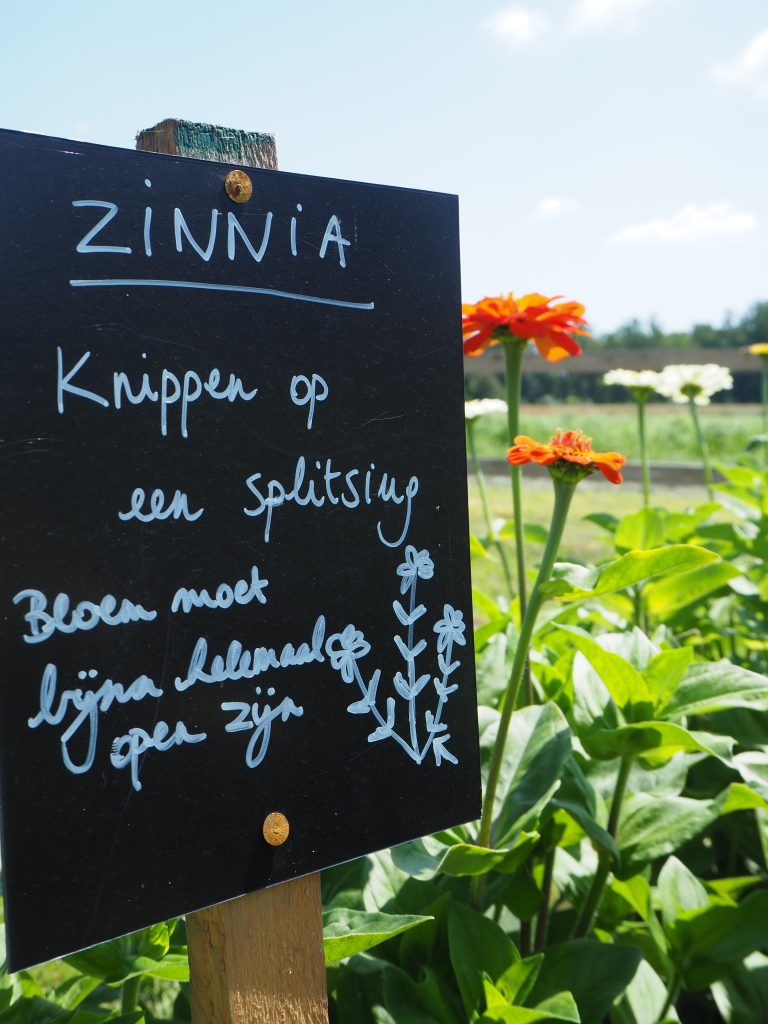 ZINNIA
Knippen op
een splitsing
Bloem moet
bijna helemaal
open zijn